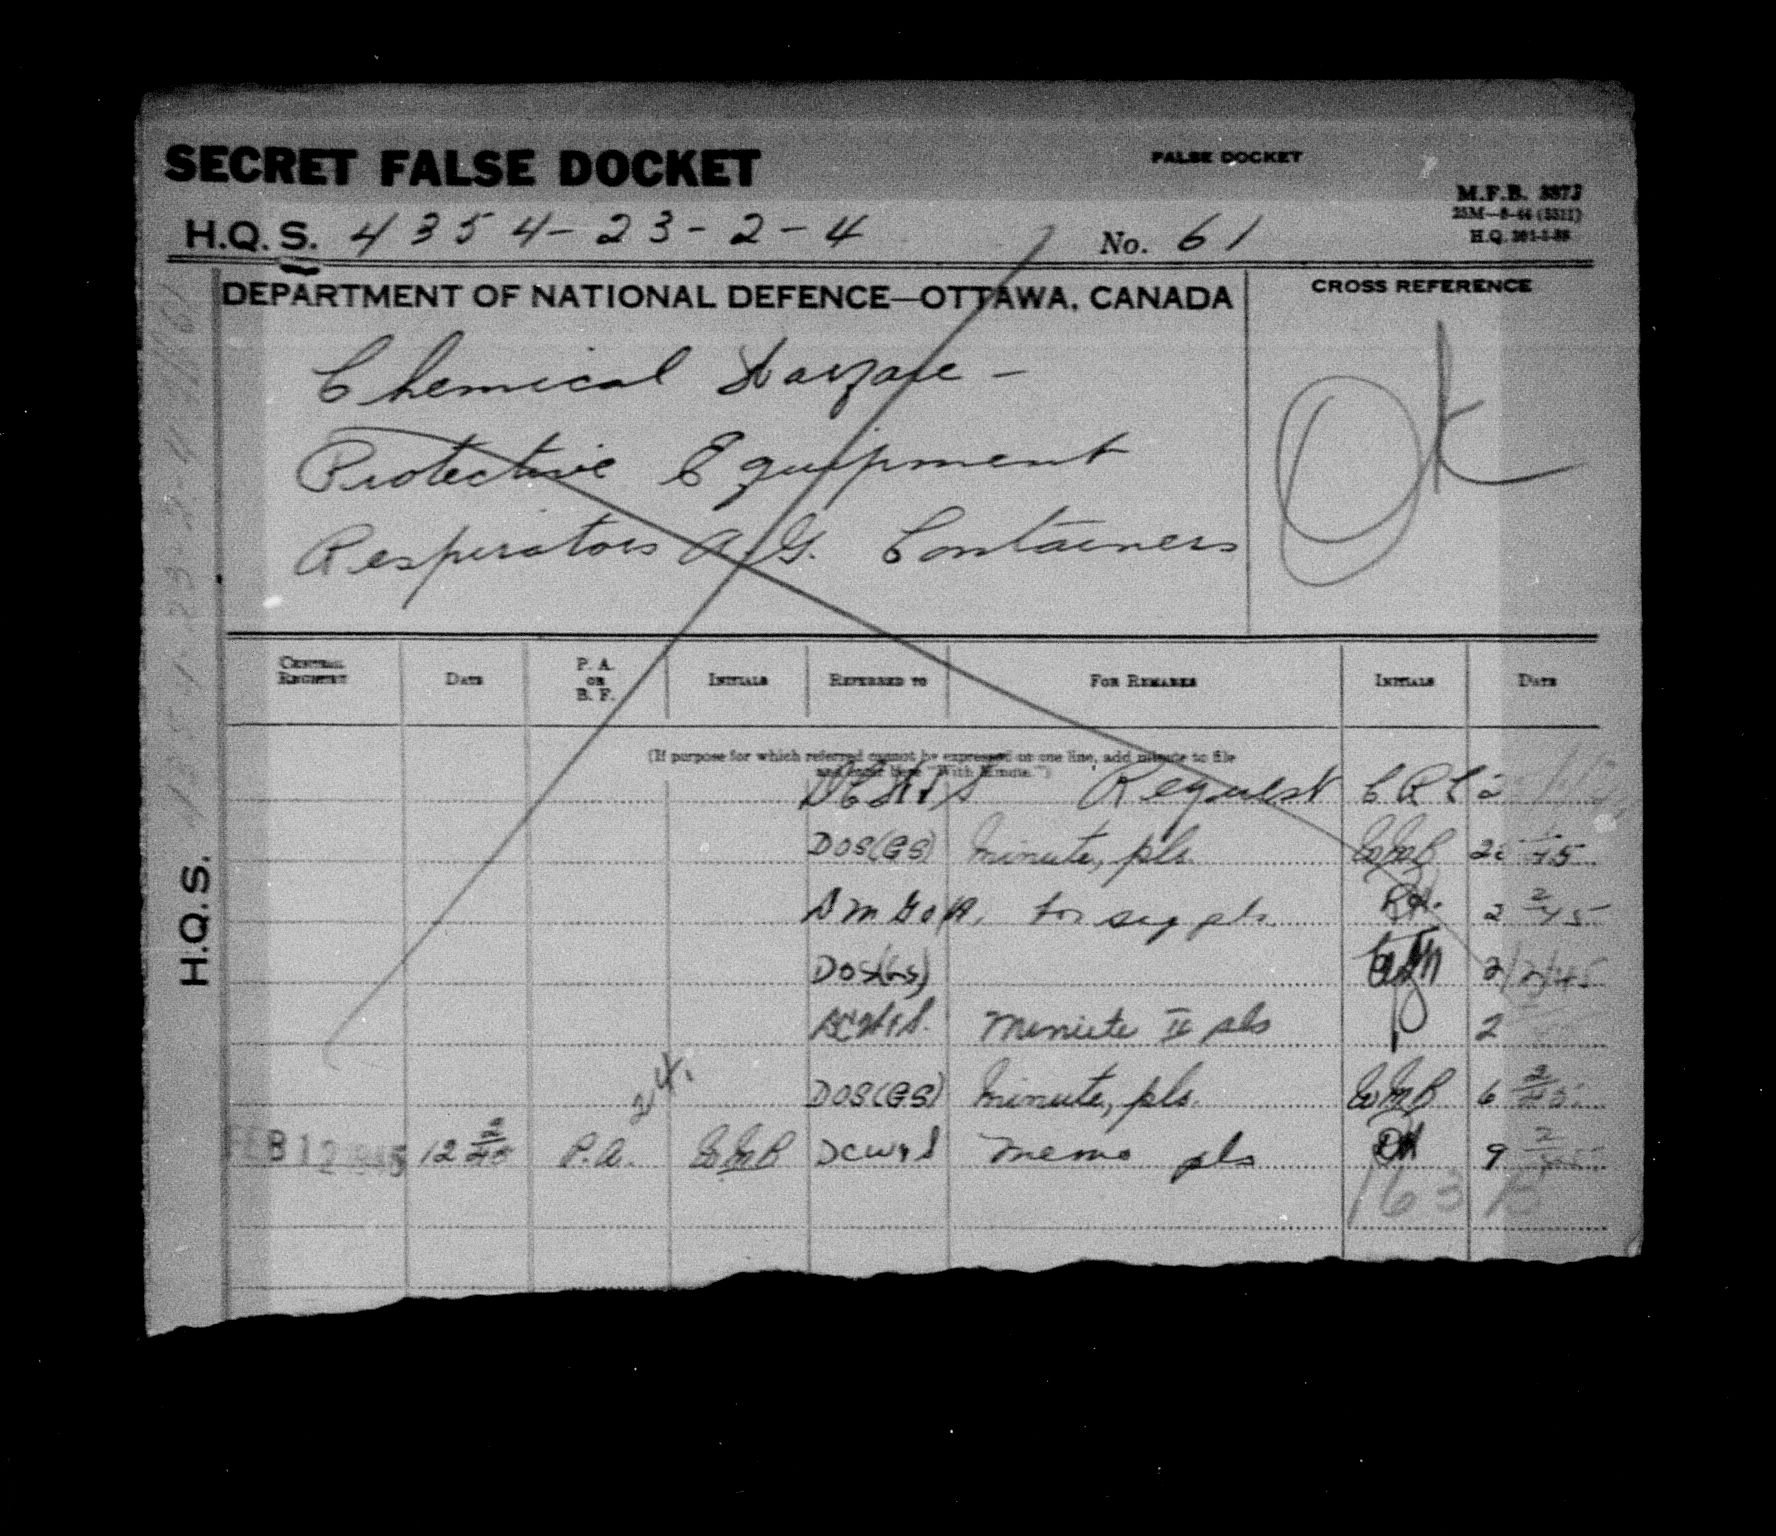 SECRET FALSE DOCKET
FALSE DOCKET
M.F.B. 387J
25M—8-44 (3311)
H.Q.S. 4354-23-2-4 No. 61
DEPARTMENT OF NATIONAL DEFENCE—OTTAWA, CANADA
CROSS REFERENCE
Chemical Warfare -
Protective Equipment
Respirators A.G. Containers
OK
CENTRAL REGISTRY DATE P. A. OR B. F. INITIALS REFERRED TO FOR REMARKS INITIALS DATE
(If purpose for which referred cannot be expressed on one line, add minute to file
and enter here "With Minute.")
DCW&S Request CRC 2
DOS(GS) Minute, pls. EMB
DMGO(A) for sig pls. RH. 2 2/45
DOS(GS) 2/2/45
DCW&S. Minute II pls 2
DOS(GS) Minute, pls. EMB 6 2/45
24.
FEB 12 1945 12 2/45 P.A. EMB DCW&S Memo pls DH 9 2/45
163 B
H.Q.S.
4354-23-2-4